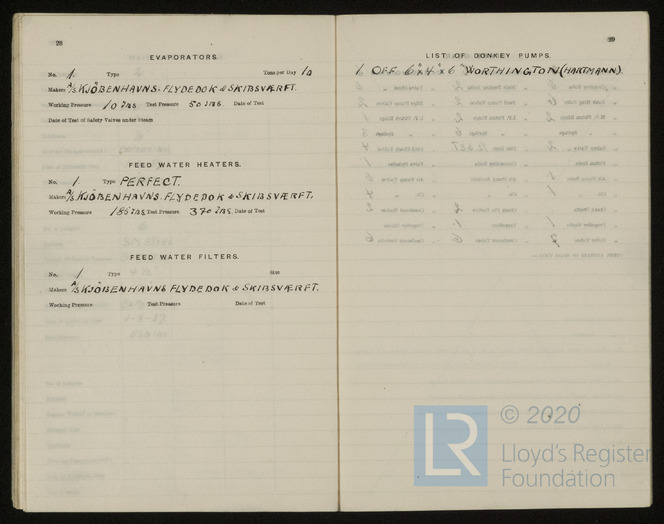 28
EVAPORATORS.
No. 1 Type Tons per Day 10
Makers A/S KJÖBENHAVNS. FLYDEDOK & SKIBSVÆRFT.
Working Pressure 10 lbs Test Pressure 50 lbs. Date of Test
Date of Test of Safety Valves under Steam
FEED WATER HEATERS.
No. 1 Type PERFECT.
Makers A/S KJÖBENHAVNS. FLYDEDOK & SKIBSVÆRFT.
Working Pressure 185 lbs Test Pressure 370 lbs. Date of Test
FEED WATER FILTERS.
No. 1 Type Size
Makers A/S KJÖBENHAVNS FLYDEDOK & SKIBSVÆRFT.
Working Pressure Test Pressure Date of Test
29
LIST OF DONKEY PUMPS.
1 OFF 6"x 4"x 6" WORTHINGTON (HARTMANN).
LR
© 2020
Lloyd's Register
Foundation